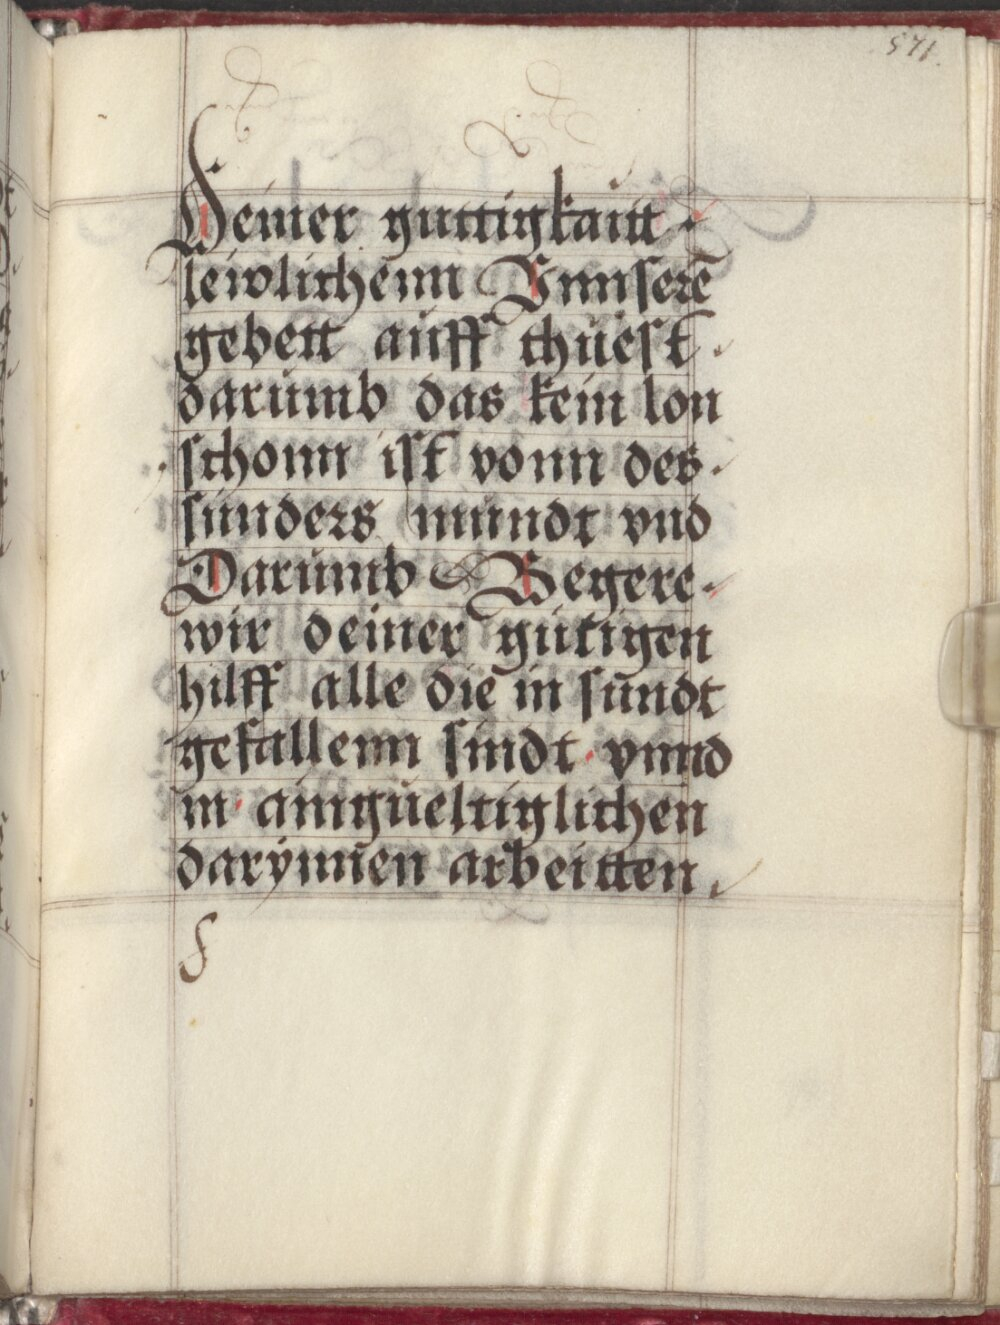 571.
Deiner guttigkaitt
leiwlichenn Vnnserē
gebett auff thuest
darumb das kein lon
schonn ist vonn des
sunders mundt vnd
Darumb Begere
wir deiner gutigen
hilff alle die in sundt
gefallenn sindt vnnd
in ainigueltiglichen
darynnen arbeitten